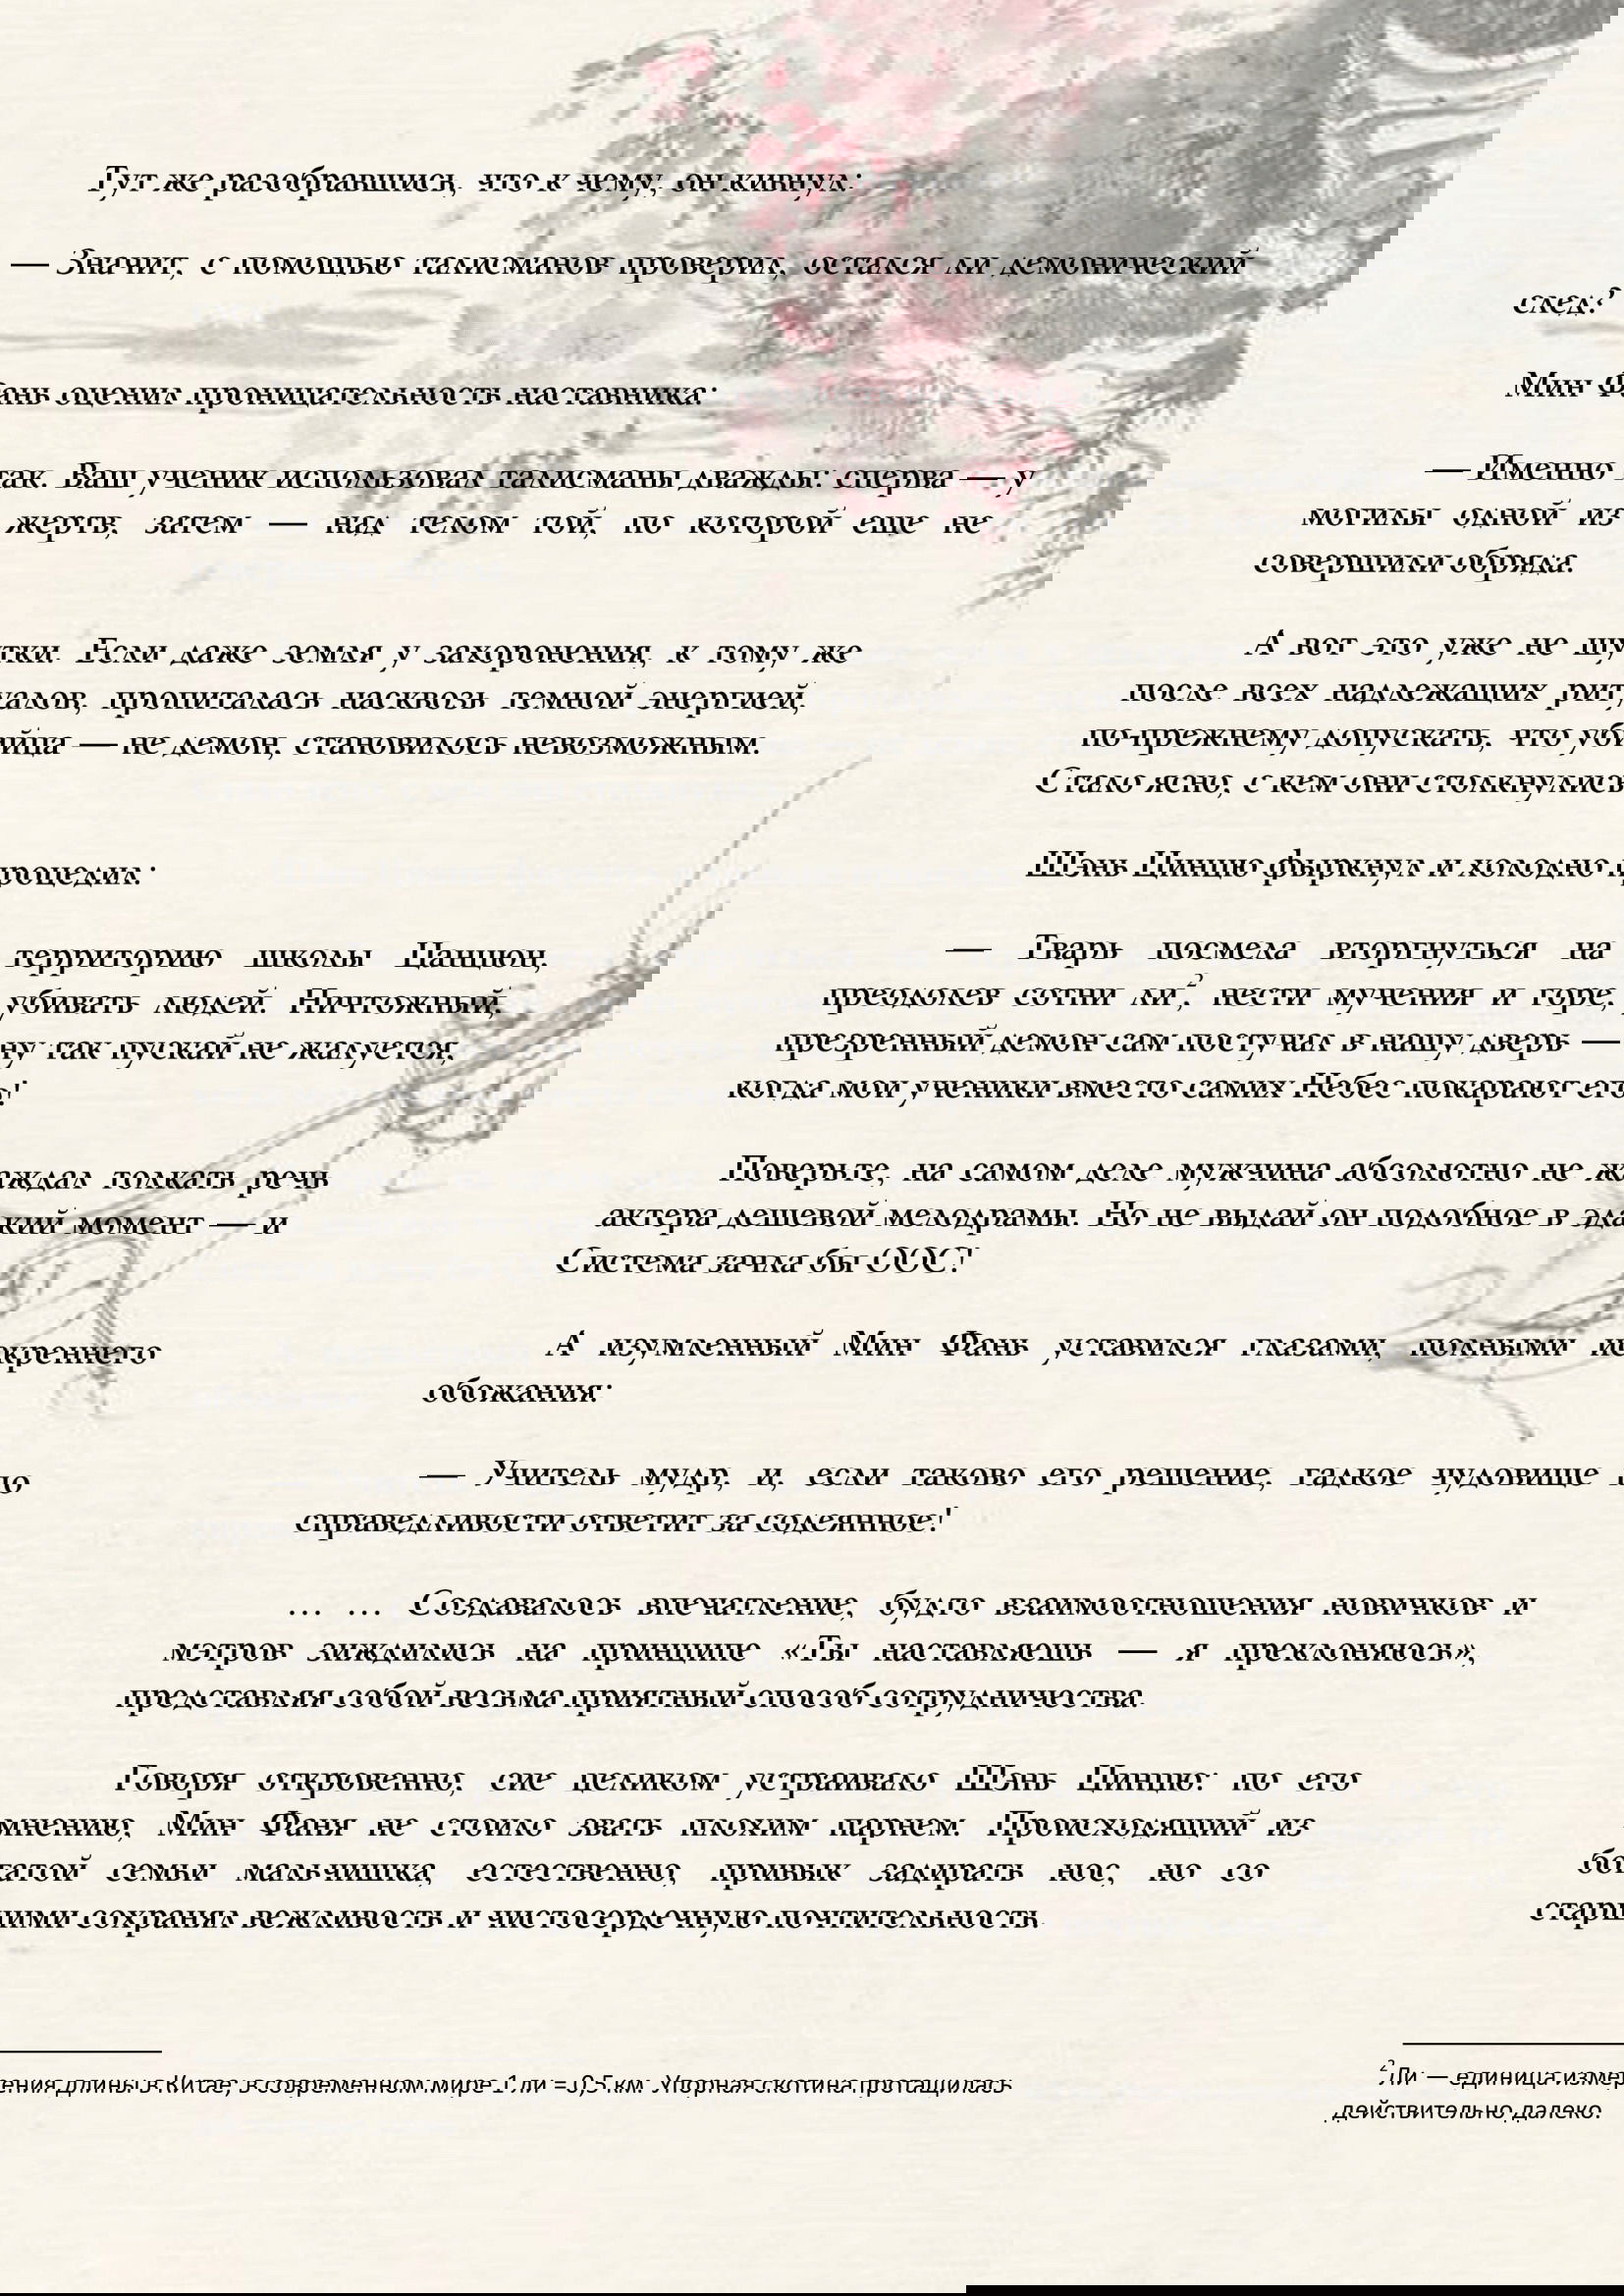 Тут же разобравшись, что к чему, он кивнул:
— Значит, с помощью талисманов проверил, остался ли демонический
след?
Мин Фань оценил проницательность наставника:
— Именно так. Ваш ученик использовал талисманы дважды: сперва — у
могилы одной из жертв, затем — над телом той, по которой еще не
совершили обряда.
А вот это уже не шутки. Если даже земля у захоронения, к тому же
после всех надлежащих ритуалов, пропиталась насквозь темной энергией,
по-прежнему допускать, что убийца — не демон, становилось невозможным.
Стало ясно, с кем они столкнулись
Шэнь Цинцю фыркнул и холодно процедил:
— Тварь посмела вторгнуться на территорию школы Цанцюн,
преодолев сотни ли,² нести мучения и горе, убивать людей! Ничтожный,
презренный демон сам постучал в нашу дверь — ну так пускай не жалуется,
когда мои ученики вместо самих Небес покарают его!
Поверьте, на самом деле мужчина абсолютно не жаждал толкать речь
актера дешевой мелодрамы. Но не выдай он подобное в эдакий момент — и
Система зачла бы ООС!
А изумленный Мин Фань уставился глазами, полными искреннего
обожания:
— Учитель мудр, и, если таково его решение, гадкое чудовище по
справедливости ответит за содеянное!
… … Создавалось впечатление, будто взаимоотношения новичков и
мэтров зиждились на принципе «Ты наставляешь — я преклоняюсь»,
представляя собой весьма приятный способ сотрудничества.
Говоря откровенно, сие целиком устраивало Шэнь Цинцю: по его
мнению, Мин Фаня не стоило звать плохим парнем. Происходящий из
богатой семьи мальчишка, естественно, привык задирать нос, но со
старшими сохранял вежливость и чистосердечную почтительность.
² Ли — единица измерения длины в Китае; в современном мире 1 ли = 0,5 км. Упорная скотина протащилась
действительно далеко.